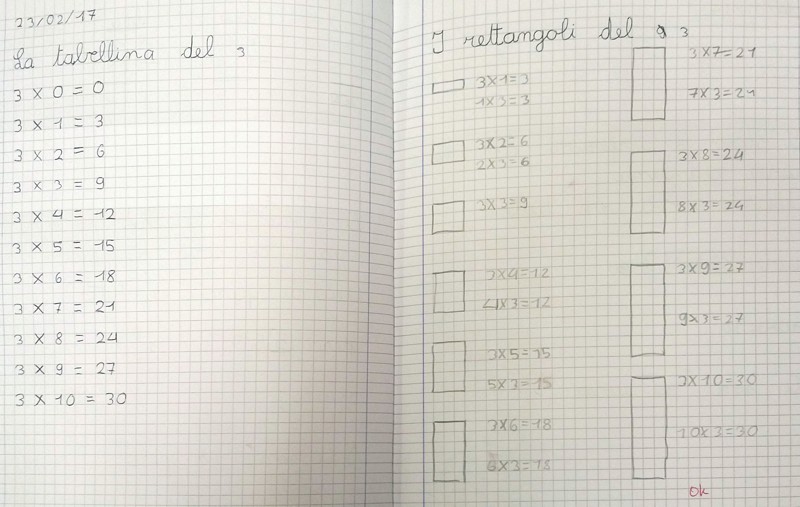 23/02/17
La tabellina del 3
3 x 0 = 0
3 x 1 = 3
3 x 2 = 6
3 x 3 = 9
3 x 4 = 12
3 x 5 = 15
3 x 6 = 18
3 x 7 = 21
3 x 8 = 24
3 x 9 = 27
3 x 10 = 30
I rettangoli del 3
3x1=3
1x3=3
3x2=6
2x3=6
3x3=9
3x4=12
4x3=12
3x5=15
5x3=15
3x6=18
6x3=18
3x7=21
7x3=21
3x8=24
8x3=24
3x9=27
9x3=27
3x10=30
10x3=30
Ok